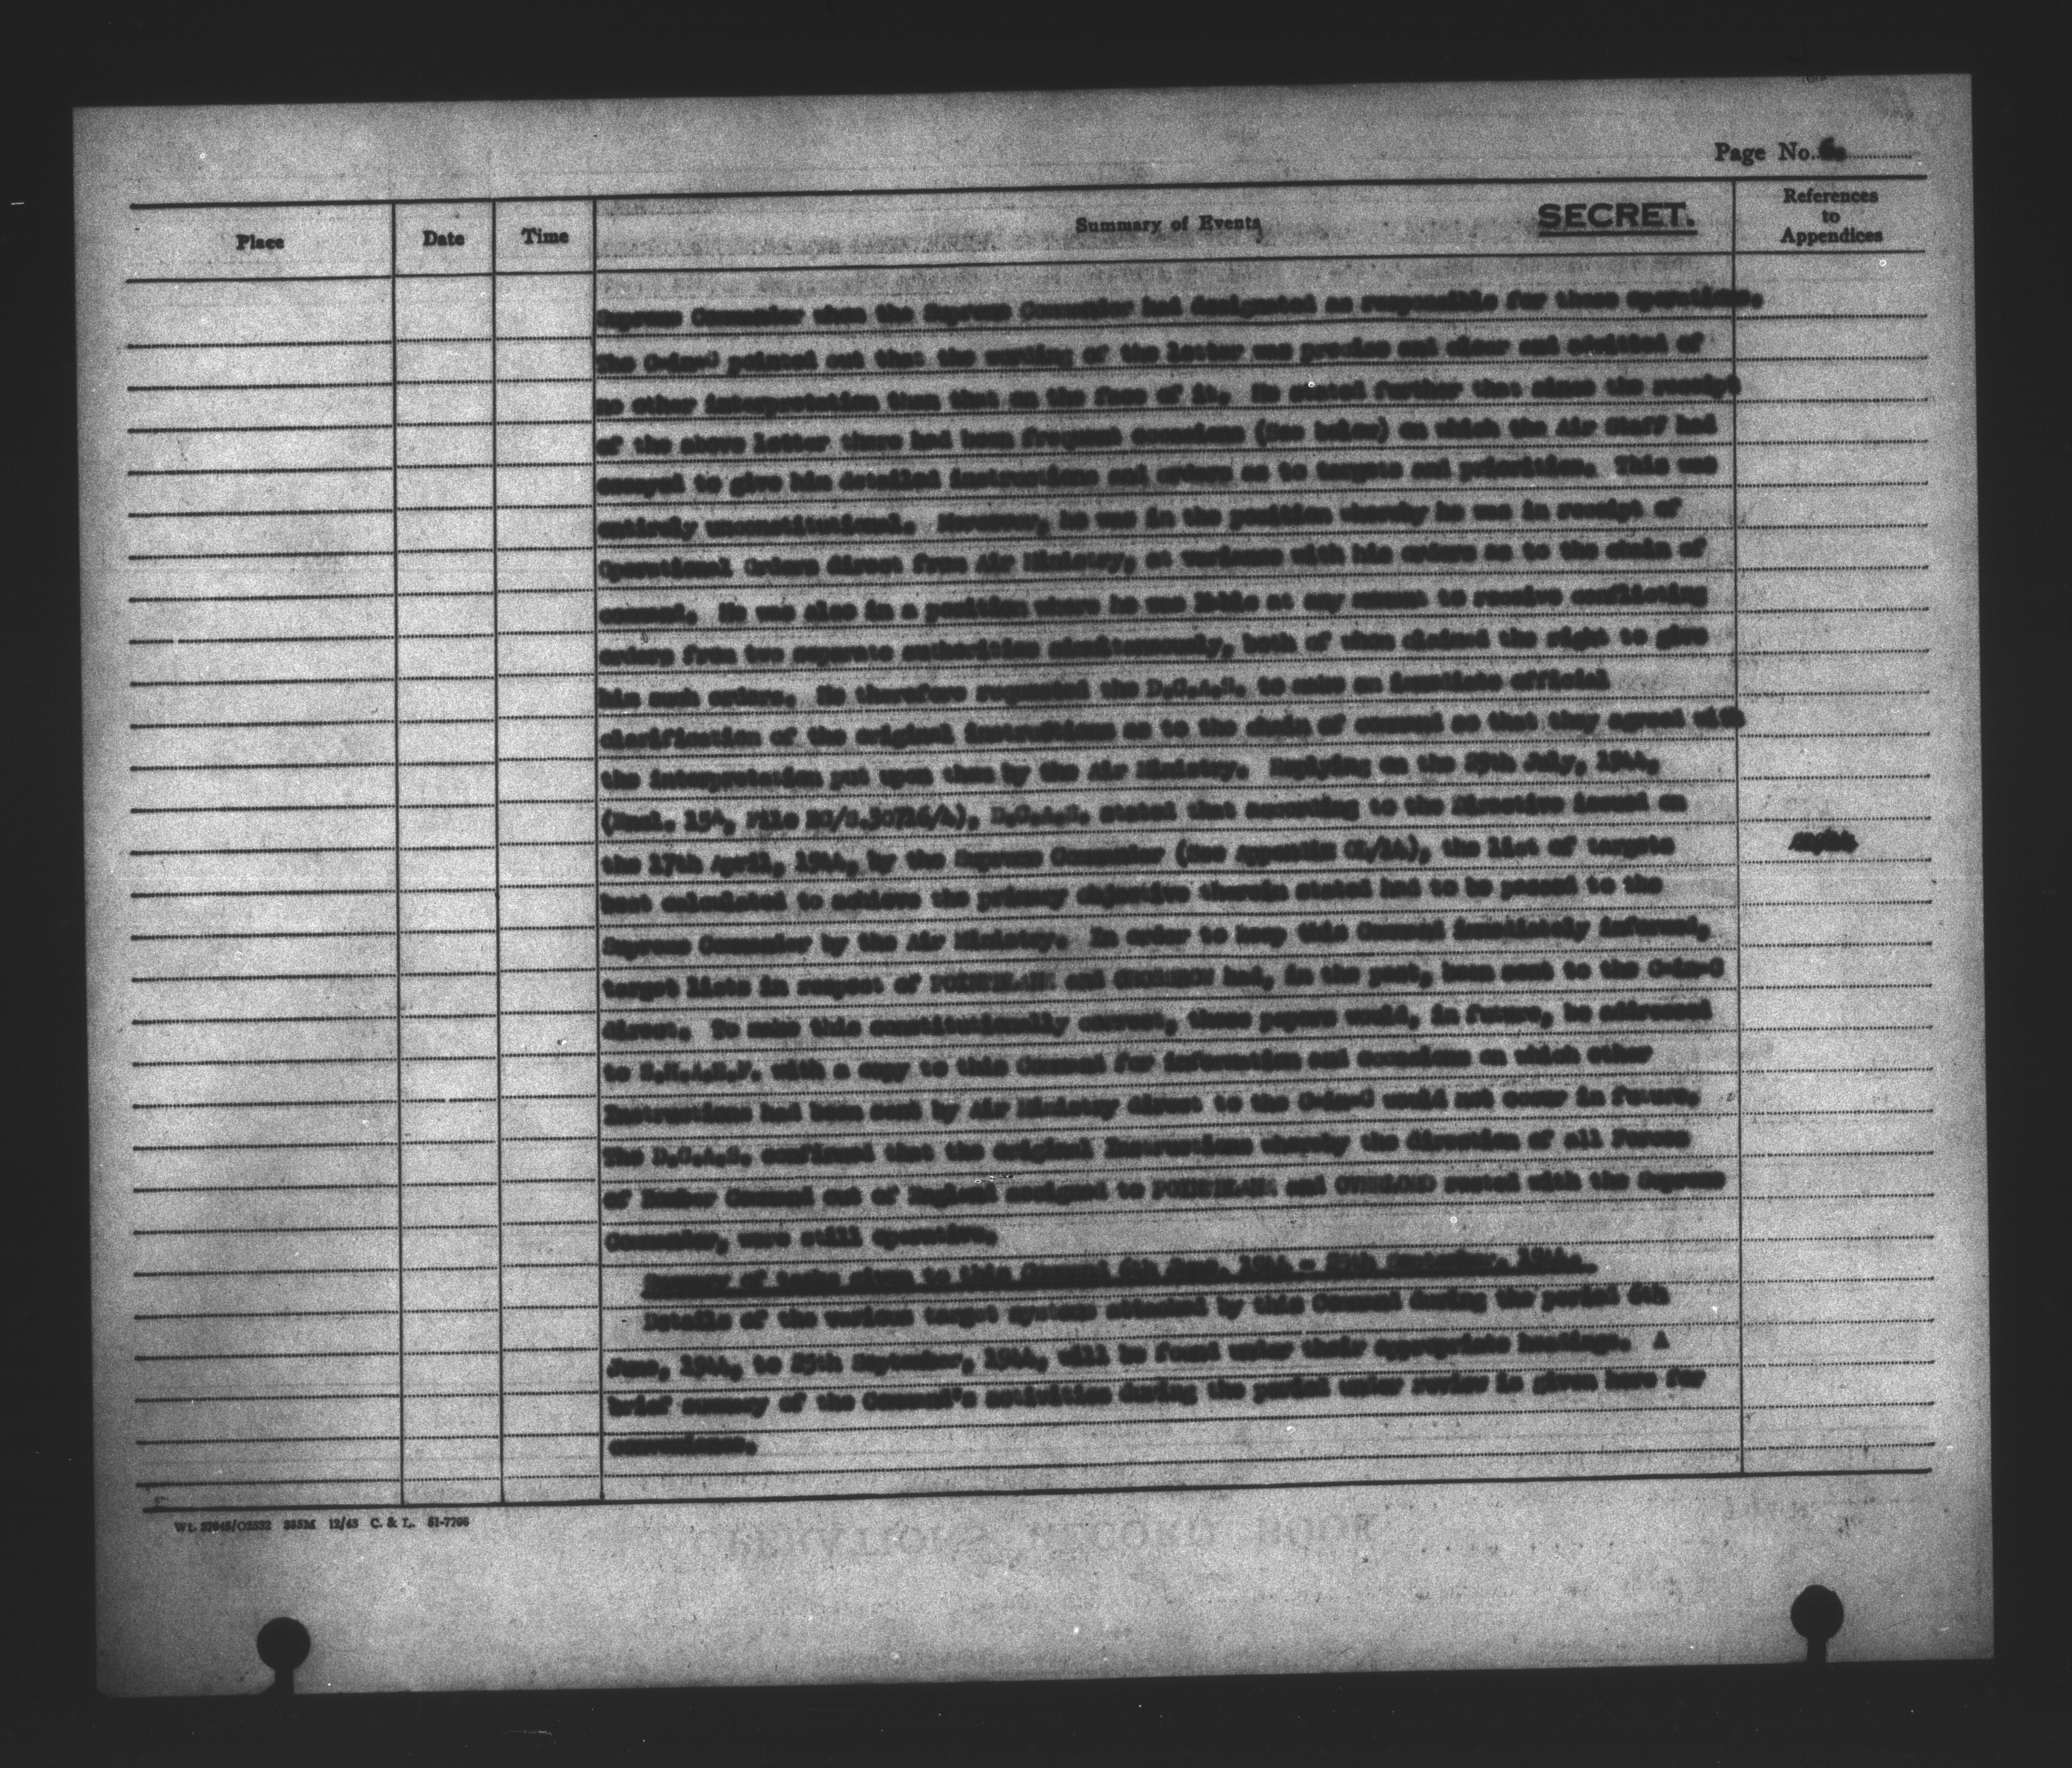 Page No.
Place Date Time Summary of Events SECRET. References to Appendices
Supreme Commander whom the Supreme Commander had designated as responsible for these operations.
The C-in-C pointed out that the wording of the letter was precise and clear and admitted of
no other interpretation than that on the face of it. He stated further that since the receipt
of the above letter there had been frequent occasions (See below) on which the Air Staff had
to give him detailed instructions and orders as to targets and priorities. This was
entirely unconstitutional. Moreover, he was in the position whereby he was in receipt of
Operational Orders direct from Air Ministry, at variance with his orders as to the chain of
command. He was also in a position where he was liable at any moment to receive conflicting
orders from two separate authorities simultaneously, both of whom claimed the right to give
him such orders. He therefore requested the D.C.A.S. to make an immediate official
clarification of the original instructions as to the chain of command so that they agreed with
the interpretation put upon them by the Air Ministry. Replying on the 29th July, 1944,
(Encl. 15A, File BC/S.30716/4), D.C.A.S. stated that according to the Directive issued on
the 17th April, 1944, by the Supreme Commander (See Appendix ), the list of targets
best calculated to achieve the primary objective therein stated had to be passed to the
Supreme Commander by the Air Ministry. In order to keep this Command immediately informed,
target lists in respect of POINTBLANK and CROSSBOW had, in the past, been sent to the C-in-C
direct. To make this constitutionally correct, these papers would, in future, be addressed
to S.H.A.E.F. with a copy to this Command for information and occasions on which other
Instructions had been sent by Air Ministry direct to the C-in-C would not occur in future.
The D.C.A.S. confirmed that the original Instructions whereby the direction of all Forces
of Bomber Command out of England assigned to POINTBLANK and OVERLORD rested with the Supreme
Commander, were still operative.
Summary of tasks given to this Command 6th June, 1944 - 25th September, 1944.
Details of the various target systems attacked by this Command during the period 6th
June, 1944, to 25th September, 1944, will be found under their appropriate headings. A
brief summary of the Command's activities during the period under review is given here for
convenience.
Wt. 37045/O2532 385M 12/43 C. & L. 51-7706